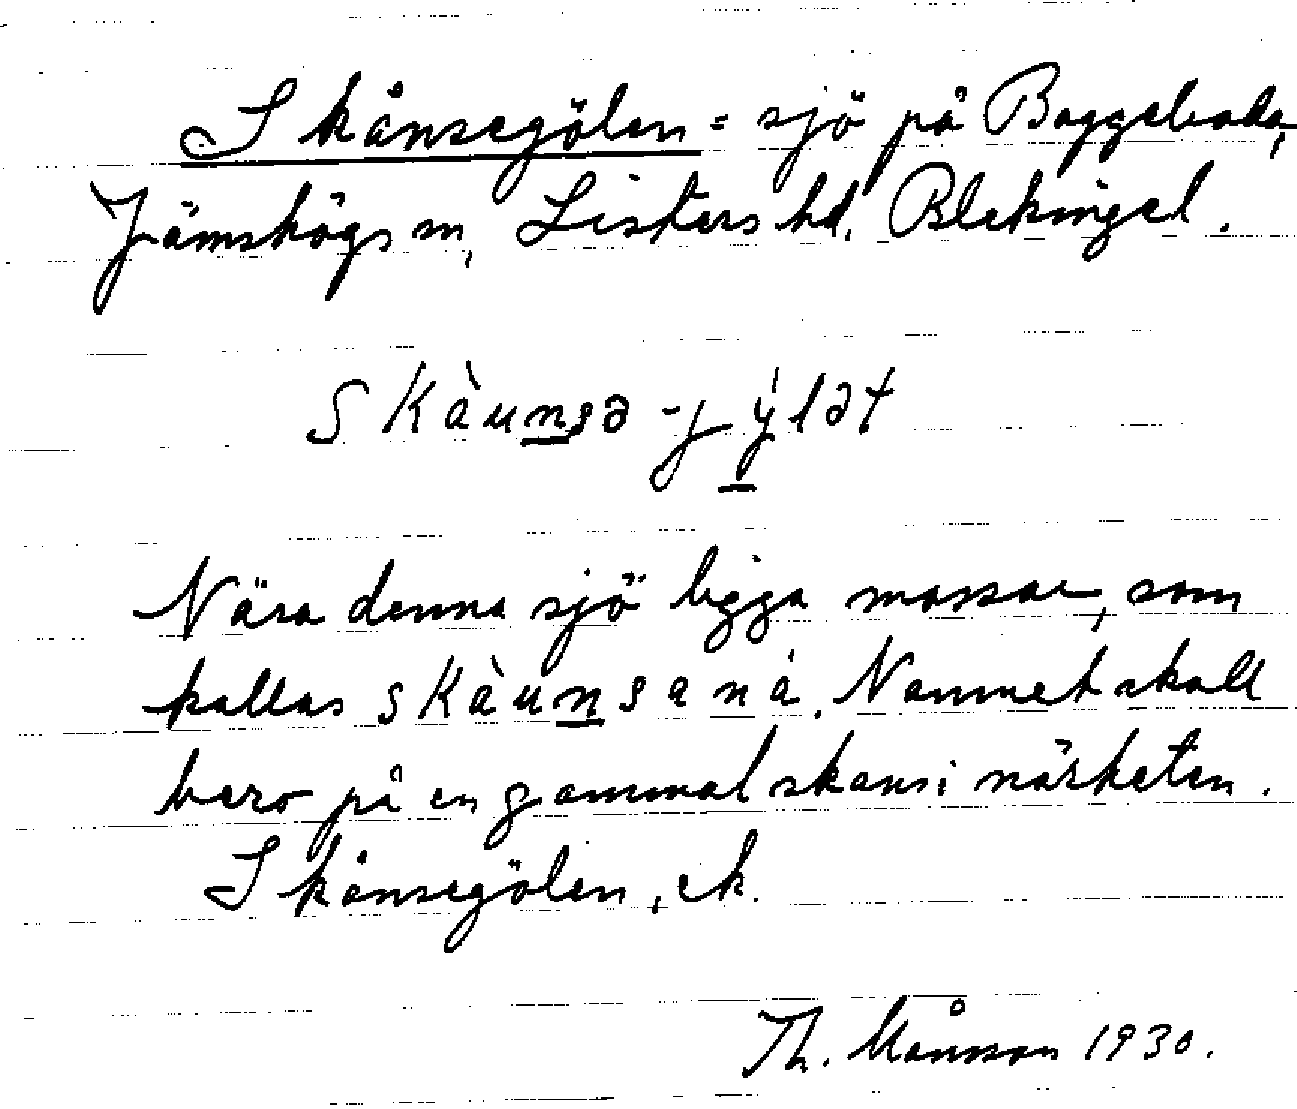 Skånsegölen = sjö på Baggeboda,
Jämshögs sn, Listers hd. Blekinge l.
skàunsə-jýlət
Nära denna sjö ligga mossar, som
kallas skàunsaná. Namnet skall
bero på en gammal skans i närheten.
Skånsegölen, ek.
Th. Månsson 1930.